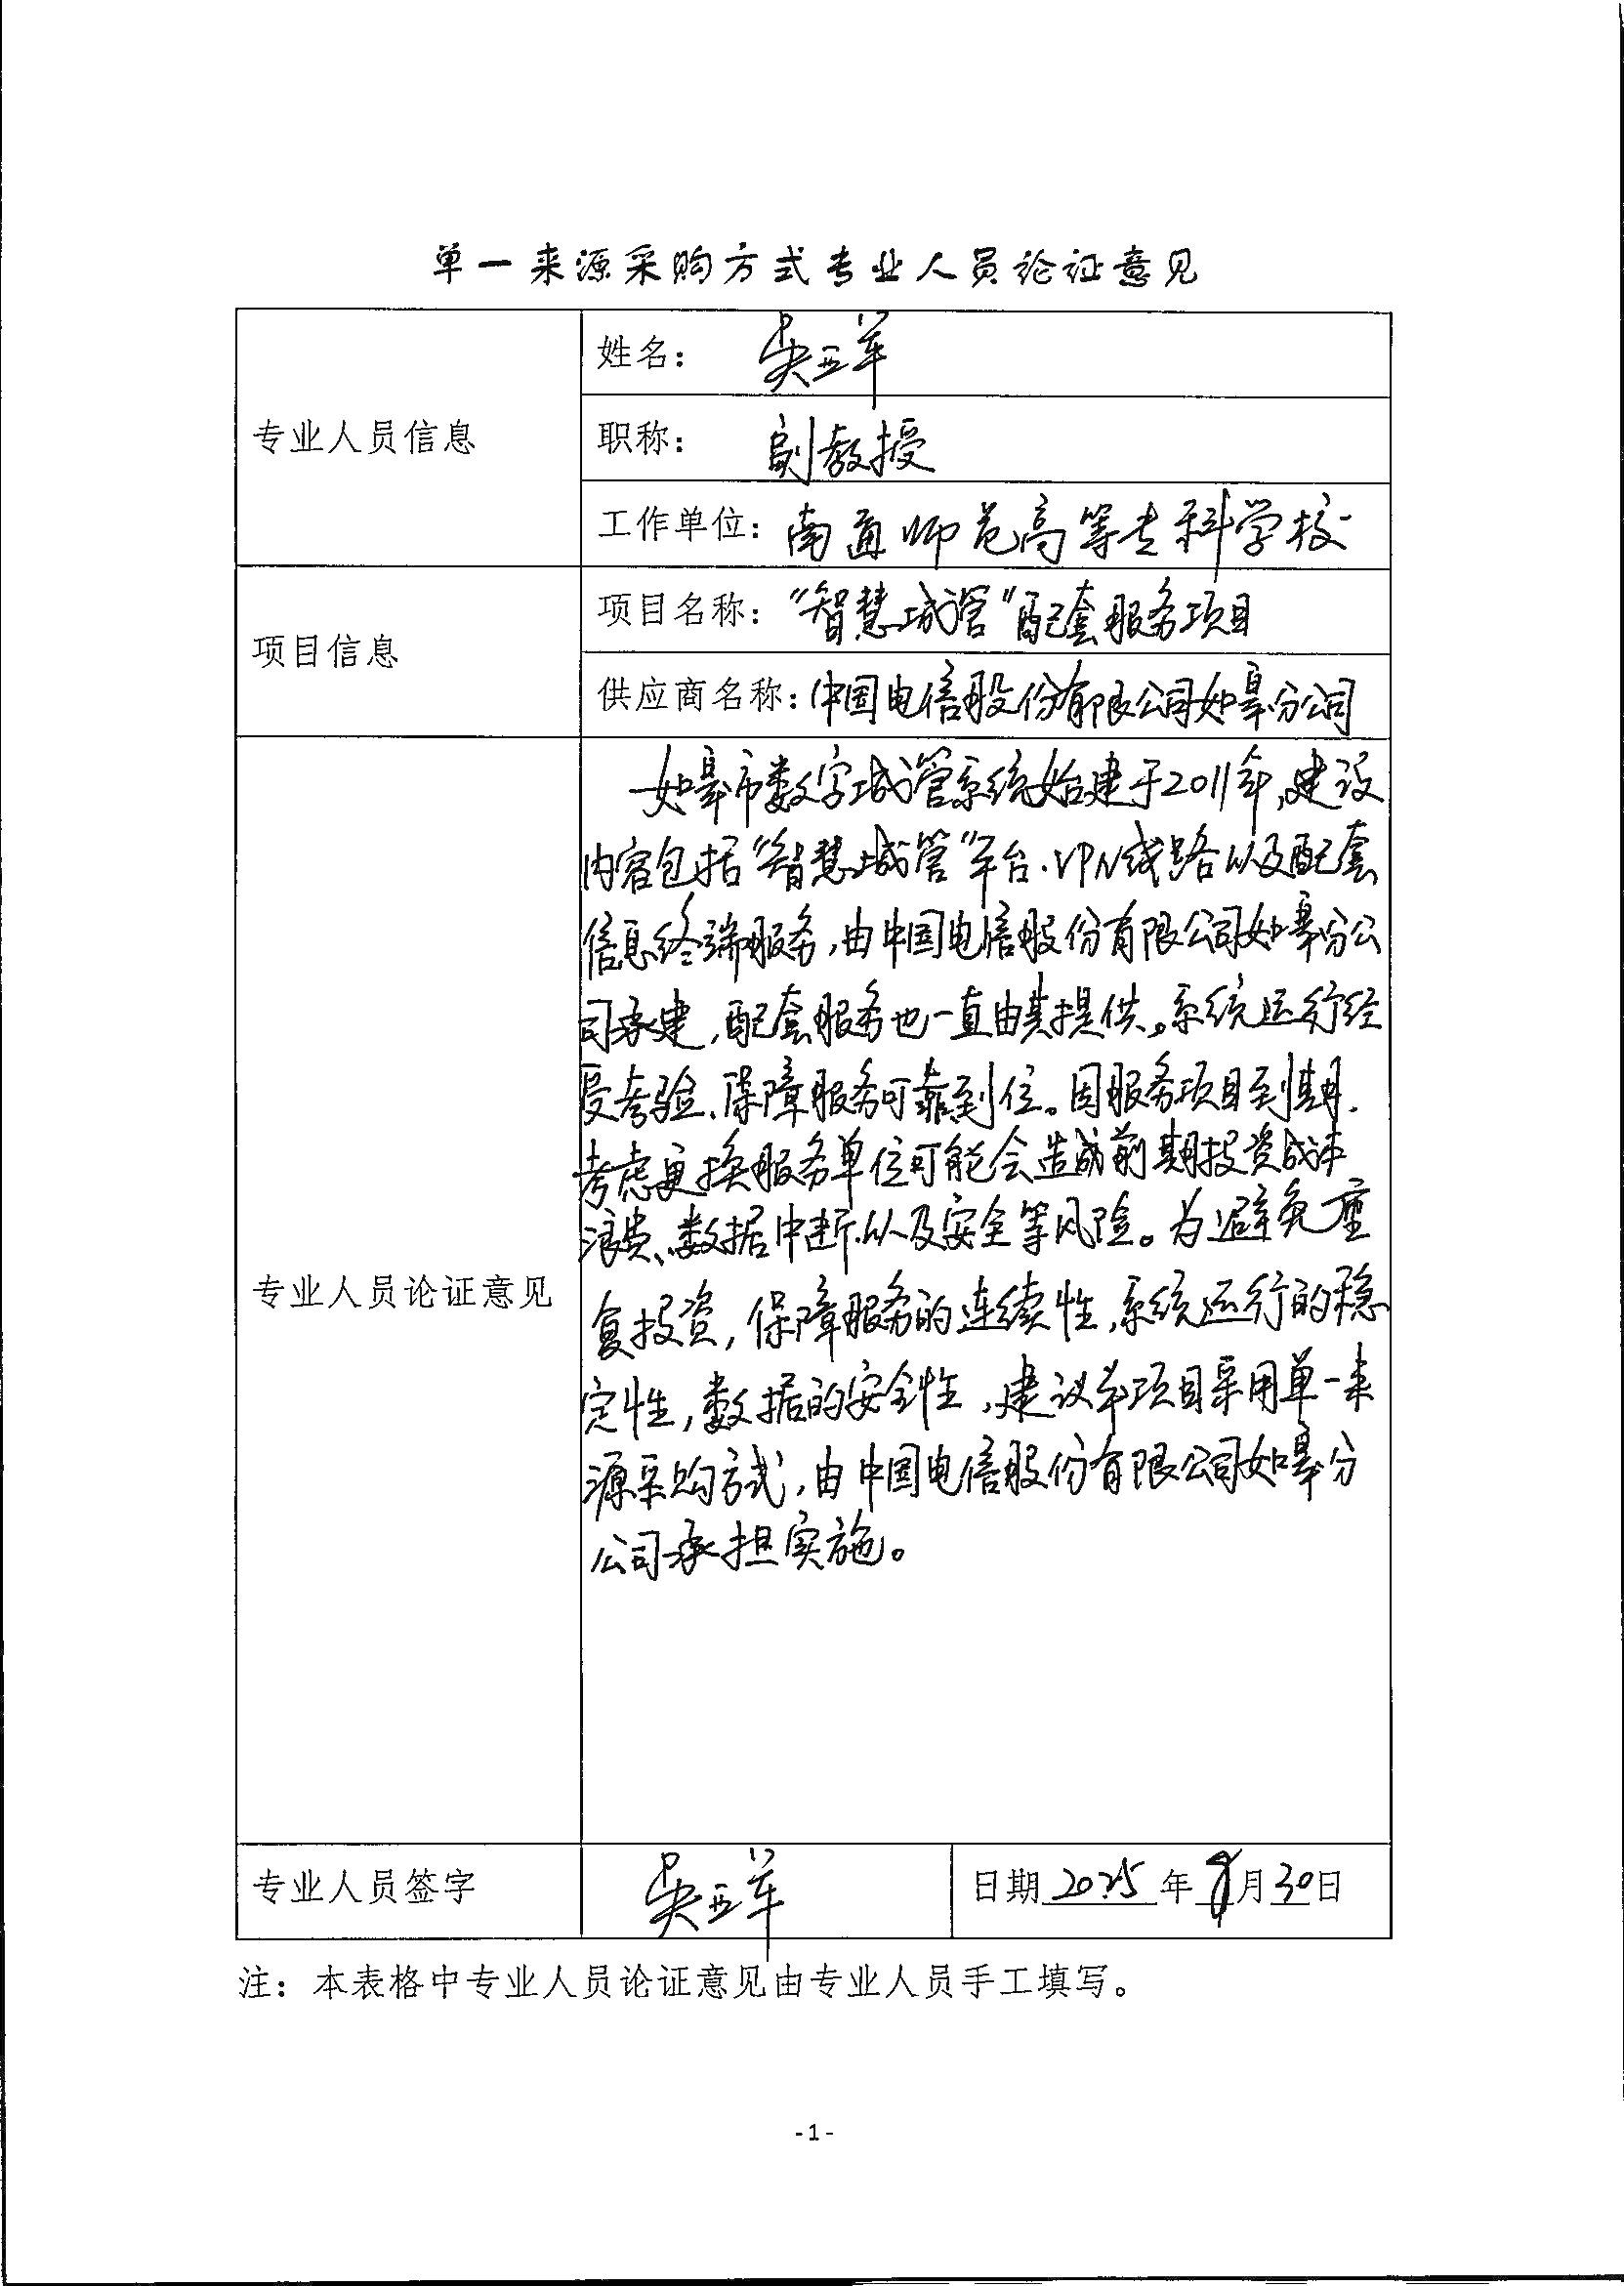 单一来源采购方式专业人员论证意见
专业人员信息
姓名： 吴亚军
职称： 副教授
工作单位：南通师范高等专科学校
项目信息
项目名称：“智慧城管”配套服务项目
供应商名称：中国电信股份有限公司如皋分公司
专业人员论证意见
如皋市数字城管系统始建于2011年,建设
内容包括“智慧城管”平台、VPN线路以及配套
信息终端服务,由中国电信股份有限公司如皋分公
司承建,配套服务也一直由其提供。系统运行经
受考验、保障服务可靠到位。因服务项目到期.
考虑更换服务单位可能会造成前期投资成本
浪费、数据中断以及安全等风险。为避免重
复投资,保障服务的连续性,系统运行的稳
定性,数据的安全性,建议本项目采用单一来
源采购方式,由中国电信股份有限公司如皋分
公司承担实施。
专业人员签字
吴亚军
日期 2025 年 月 30 日
注：本表格中专业人员论证意见由专业人员手工填写。
-1-